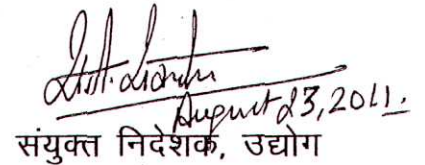 August 23, 2011.
संयुक्त निदेशक, उद्योग